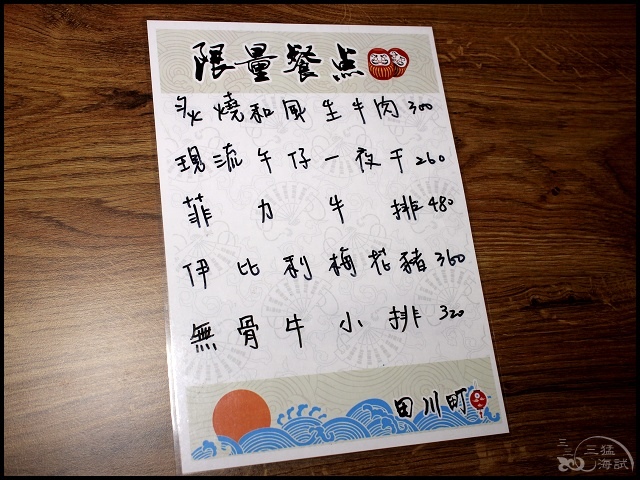 限量餐点
炙燒和風生牛肉 300
現流午仔一夜干 260
菲力牛排 480
伊比利梅花豬 360
無骨牛小排 320
田川町
三猛
海試